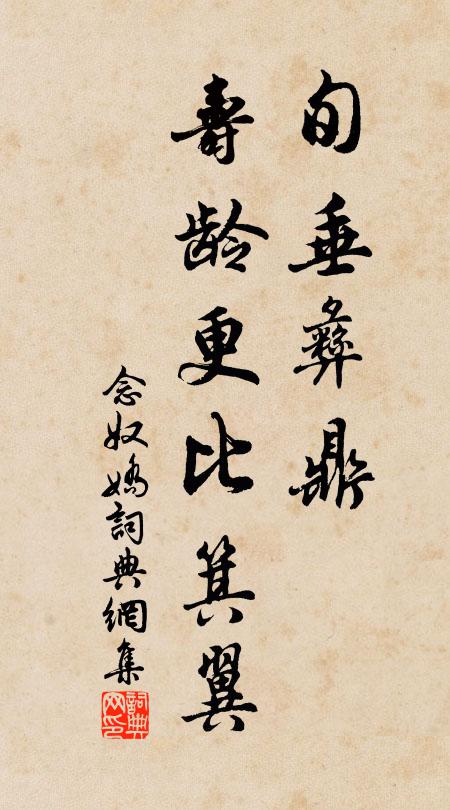 旬垂彝鼎
壽龄更比箕翼
念奴嬌詞典網集
詞典网印